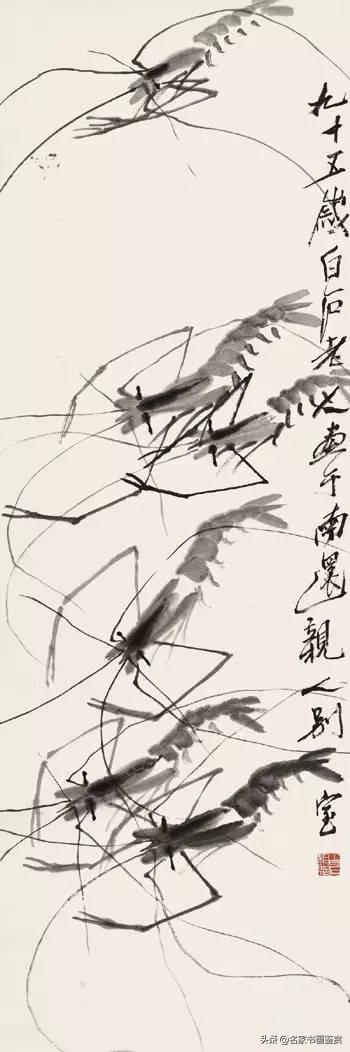 九十五歲白石老人画于南還親人别
室
头条 @名家书画鉴赏